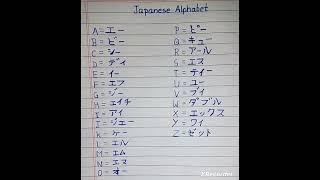 Japanese Alphabet
A = エー
B = ビー
C = シー
D = ディ
E = イー
F = エフ
G = ジー
H = エイチ
I = アイ
J = ジェー
K = ケー
L = エル
M = エム
N = エヌ
O = オー
P = ピー
Q = キュー
R = アール
S = エス
T = ティー
U = ユー
V = ブイ
W = ダブル
X = エックス
Y = ワイ
Z = ゼット
XRecorder